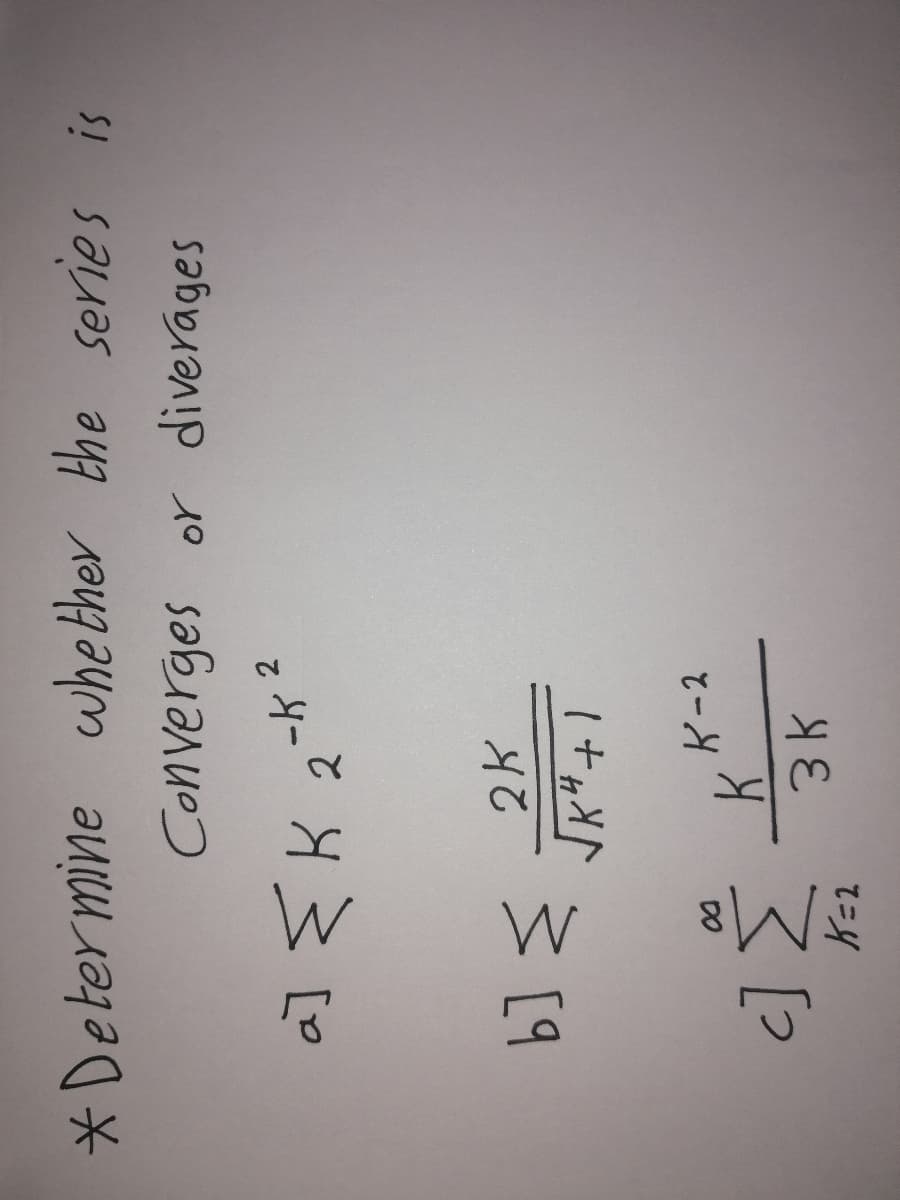 * Determine whether the series is
Converges or diverages
a] Σ K 2^{-K^2}
b] Σ 2K / √(K^4+1)
c] Σ_{K=2}^{∞} K^{K-2} / 3K